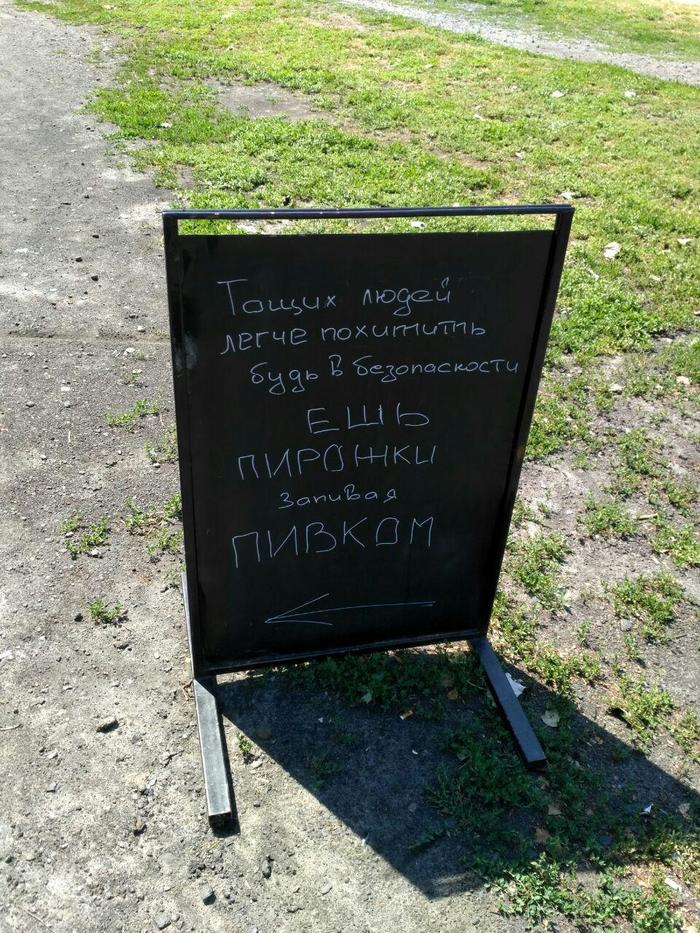 Тощих людей
легче похитить
будь в безопасности
ЕШЬ
ПИРОЖКИ
запивая
ПИВКОМ